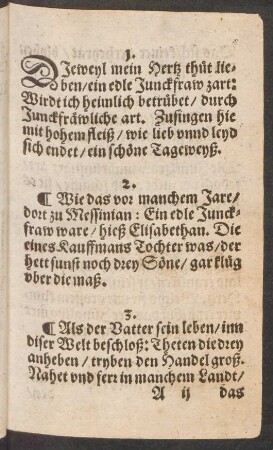 1.
DJeweyl mein Hertz thůt lie-
ben/ein edle Junckfraw zart:
Wirdt ich heimlich betrübet/durch
Junckfräwliche art. Zusingen hie
mit hohem fleiß/wie lieb vnnd leyd
sich endet/ein schöne Tageweyß.
2.
¶ Wie das vor manchem Jare/
dort zu Messinian: Ein edle Junck-
fraw ware/hieß Elisabethan. Die
eines Kauffmans Tochter was/der
hett sunst noch drey Söne/gar klůg
vber die maß.
3.
¶ Als der Vatter sein leben/inn
diser Welt beschloß: Theten die drey
anheben/tryben den Handel groß.
Nahet vnd ferr in manchem Landt/
A ij das